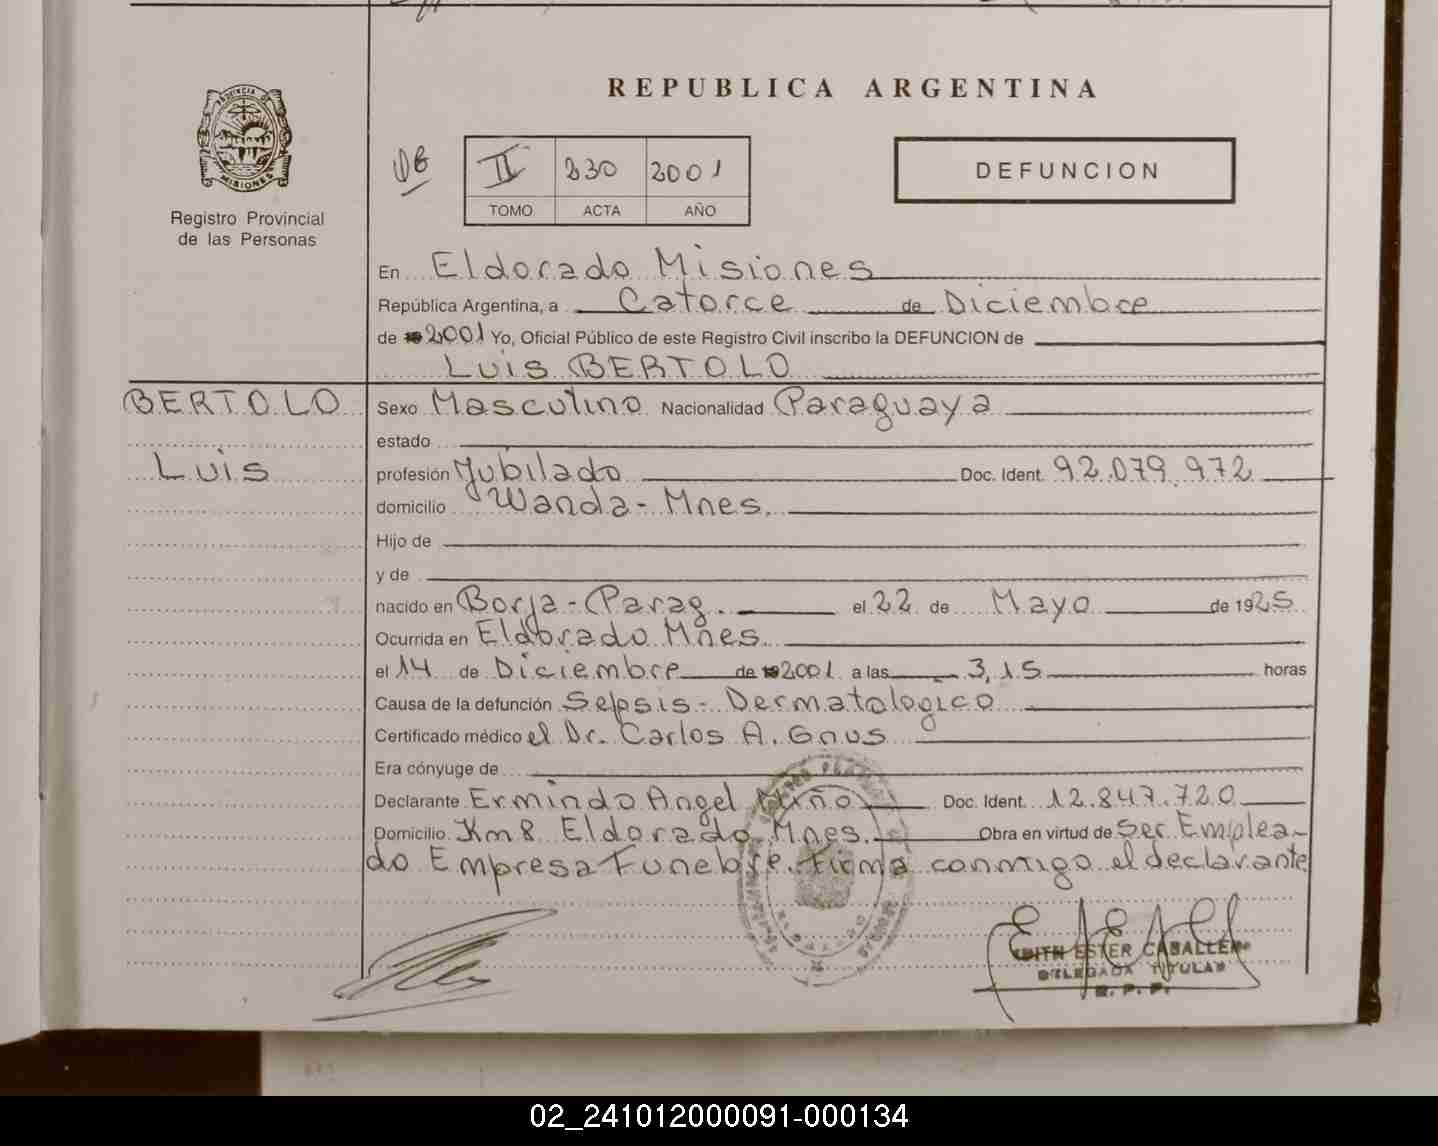 REPUBLICA ARGENTINA
PROVINCIA DE MISIONES
Registro Provincial
de las Personas
II 230 2001
TOMO ACTA AÑO
DEFUNCION
En Eldorado Misiones
República Argentina, a Catorce de Diciembre
de 2001 Yo, Oficial Público de este Registro Civil inscribo la DEFUNCION de
Luis BERTOLO
BERTOLO
Luis
Sexo Masculino Nacionalidad Paraguaya
estado
profesión Jubilado Doc. Ident. 92.079.972
domicilio Wanda - Mnes.
Hijo de
y de
nacido en Borja - Parag. el 22 de Mayo de 1925
Ocurrida en Eldorado Mnes.
el 14 de Diciembre de 2001 a las 3,15 horas
Causa de la defunción Sepsis - Dermatologico
Certificado médico el Dr. Carlos A. Gnus
Era cónyuge de
Declarante Ermindo Angel Doc. Ident. 12.847.720
Domicilio Km 8 Eldorado Mnes. Obra en virtud de Ser Emplea-
do Empresa Funebre. Firma conmigo el declarante
EDITH ESTER CABALLERO
DELEGADA TITULAR
R. P. P.
02_241012000091-000134